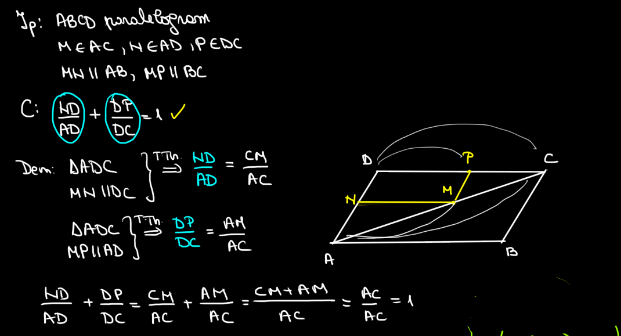 Ip: ABCD paralelogram
M∈AC, N∈AD, P∈DC
MN∥AB, MP∥BC
C: ND/AD + DP/DC = 1 ✓
Dem: ΔADC
MN∥DC } T.Th. ⇒ ND/AD = CM/AC
ΔADC
MP∥AD } T.Th. ⇒ DP/DC = AM/AC
ND/AD + DP/DC = CM/AC + AM/AC = CM+AM/AC = AC/AC = 1
D P C
N M
A B